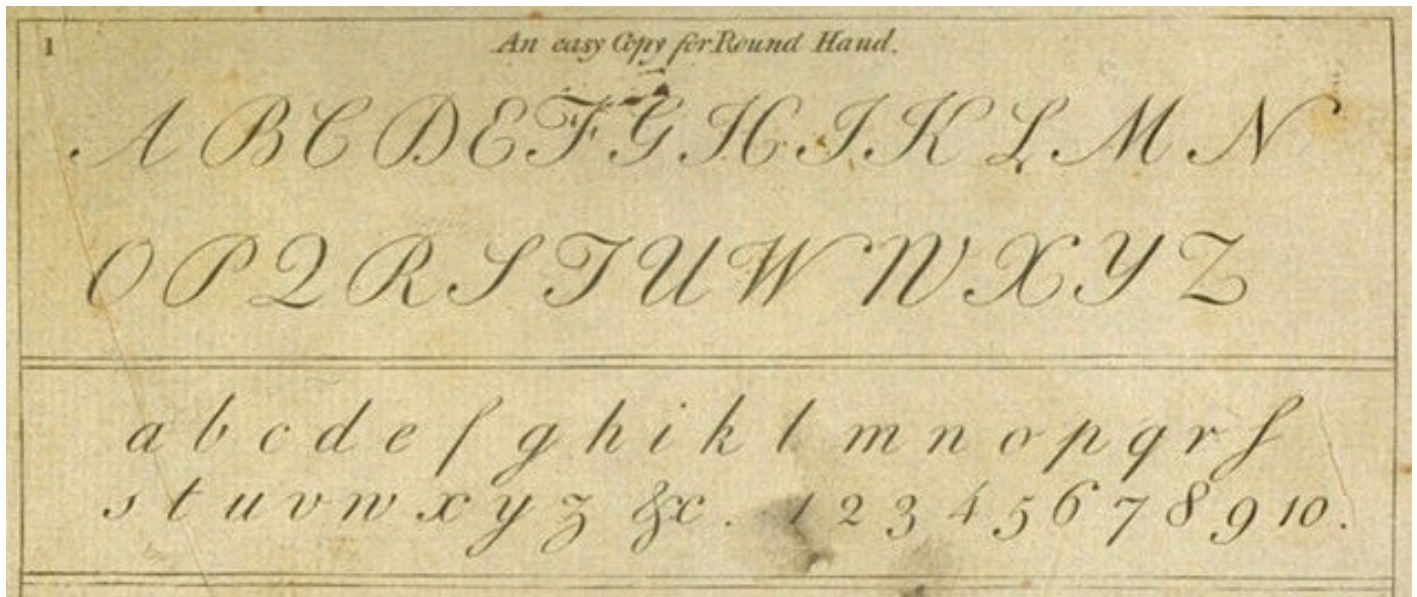 1
An easy Copy for Round Hand.
A B C D E F G H I K L M N
O P Q R S T U W W X Y Z
a b c d e f g h i k l m n o p q r ſ
s t u v w x y z &c. 1 2 3 4 5 6 7 8 9 10.